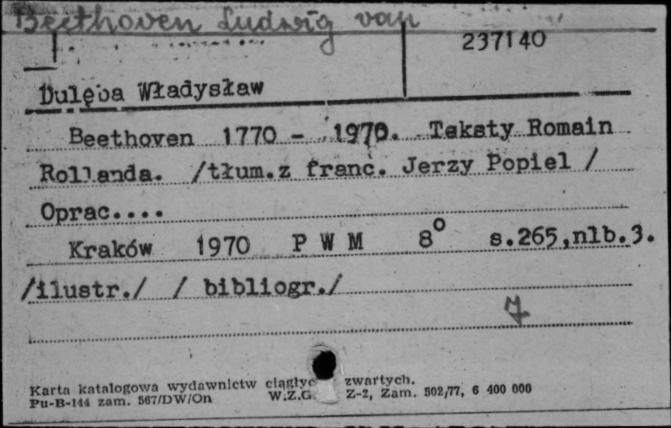 Beethoven Ludwig van
237140
Dulęba Władysław
Beethoven 1770 - 1970. Teksty Romain
Rollanda. /tłum.z franc. Jerzy Popiel /
Oprac....
Kraków 1970 P W M 8° s.265,nlb.3.
/ilustr./ / bibliogr./
7
Karta katalogowa wydawnictw ciągłyc zwartych.
Pu-B-144 zam. 567/DW/On W.Z.G Z-2, Zam. 502/77, 6 400 000